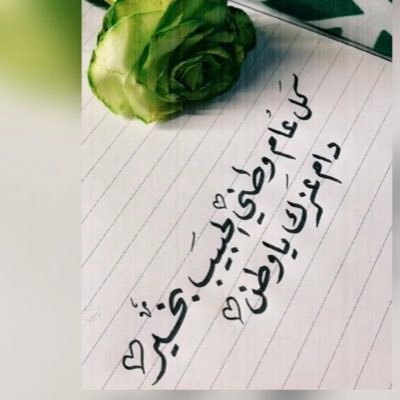 كل عَام وطني الحبيَب بخيرٌ
دام عزكَ يا وطن